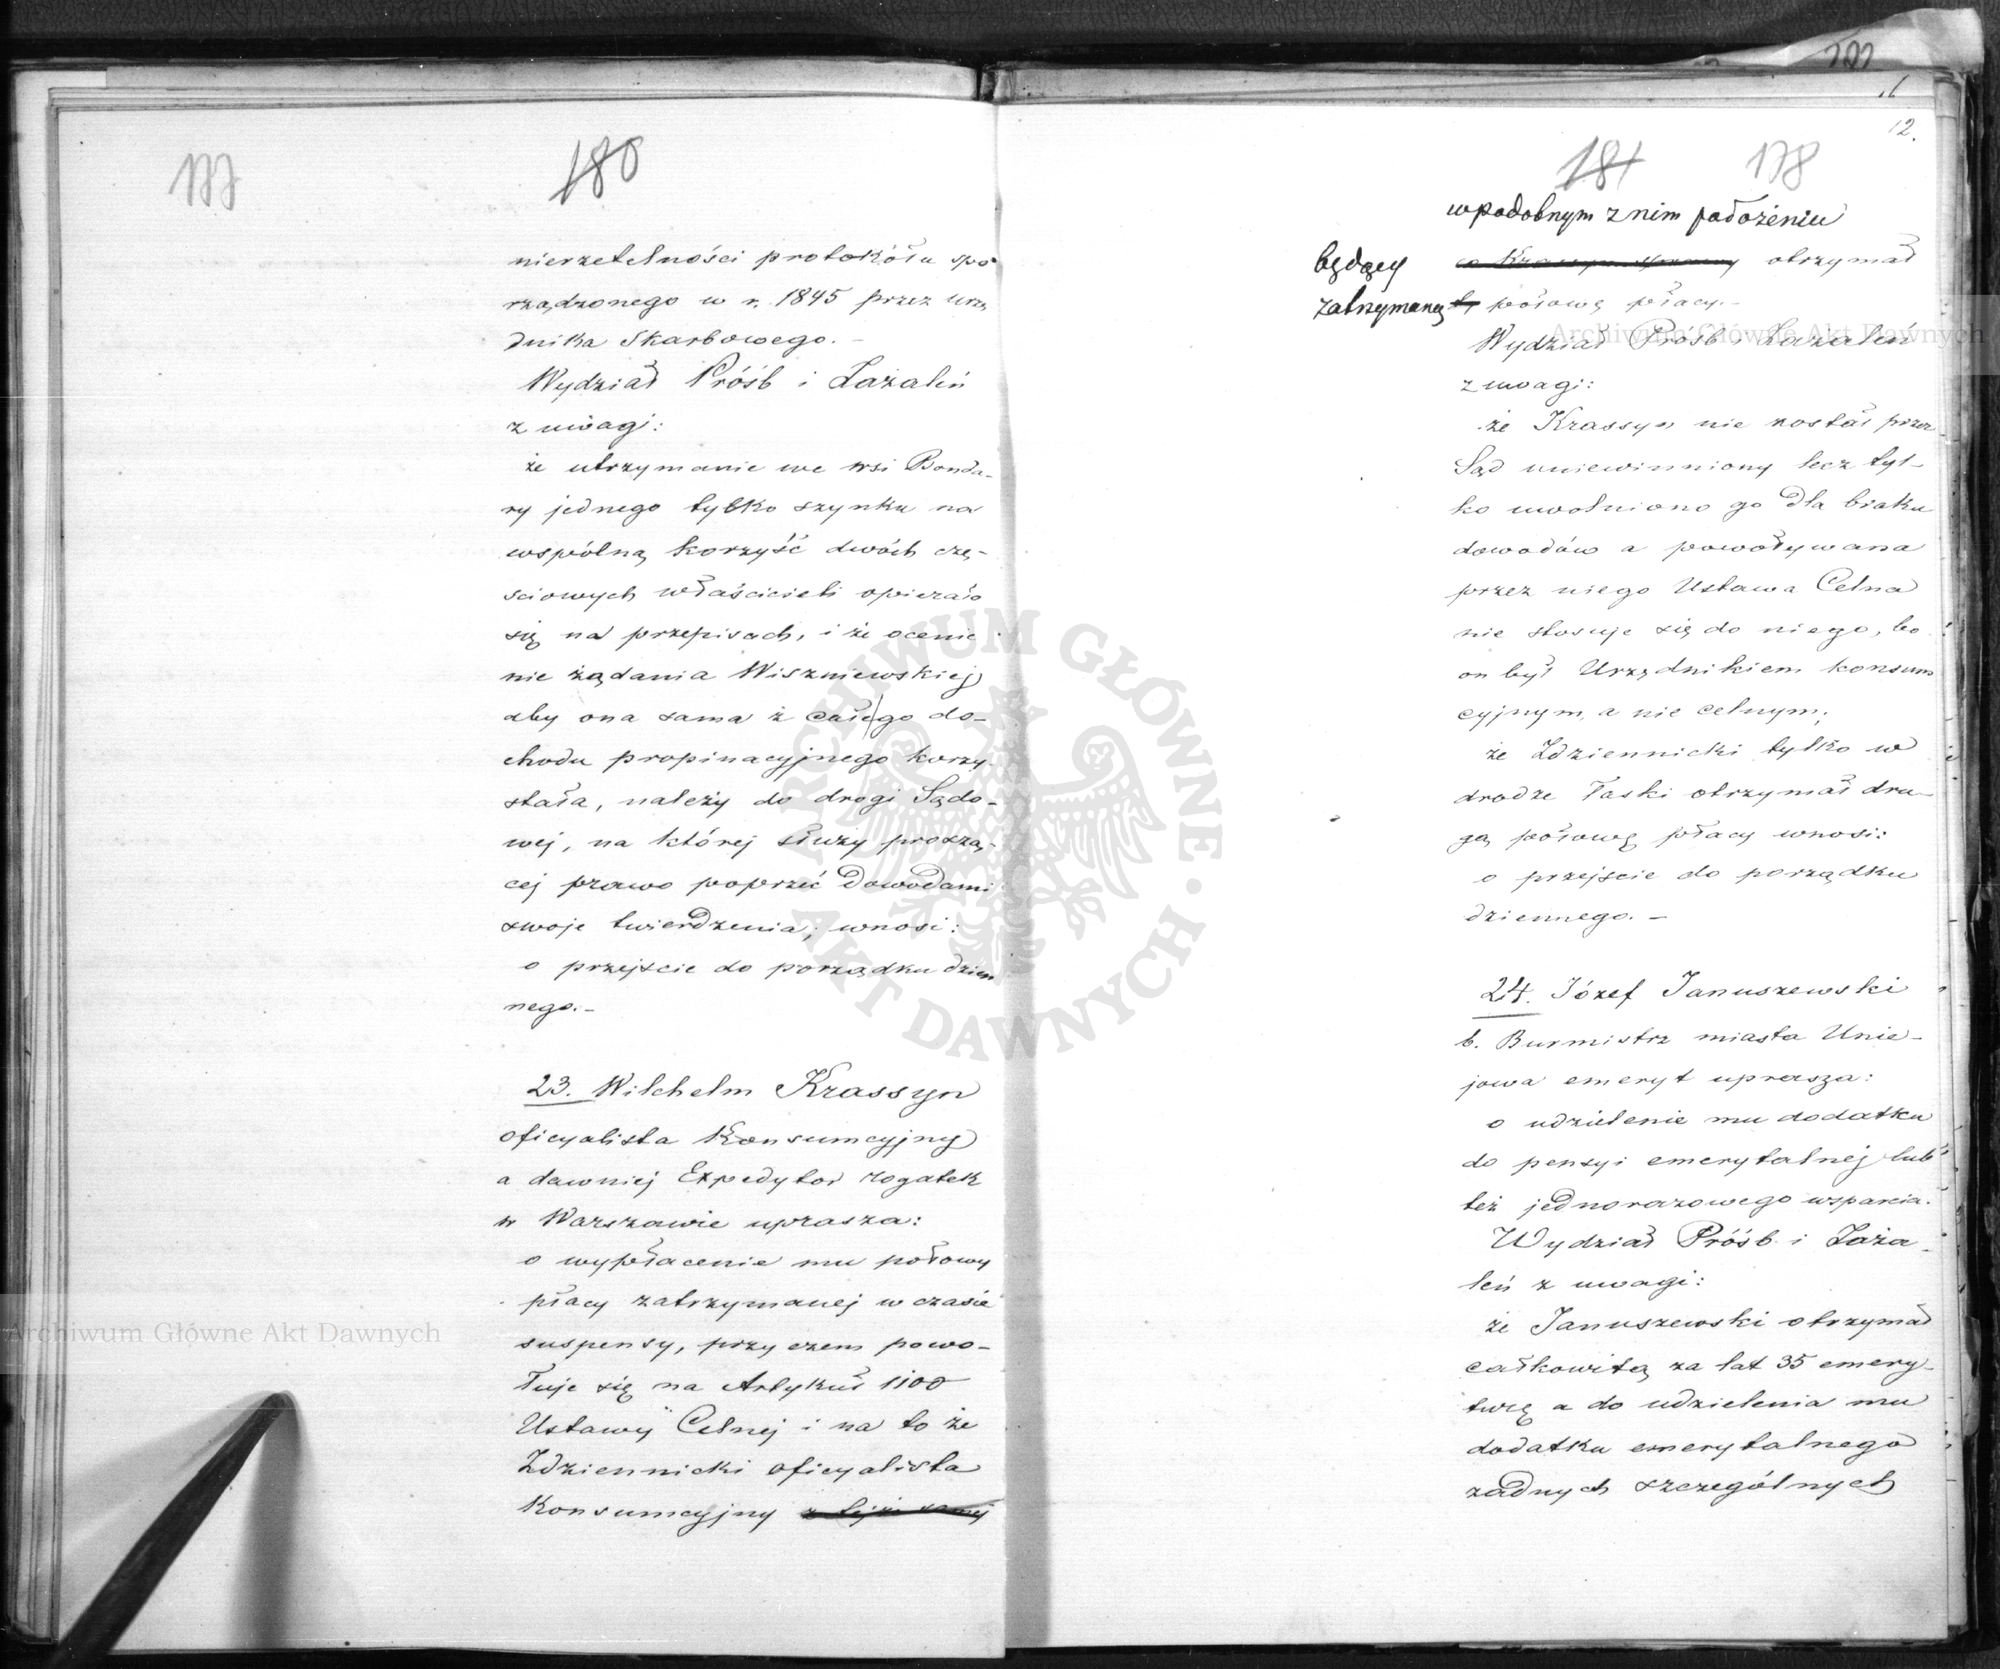 177
180
nierzetelności protokółu spo
rządzonego w r. 1845 przez urzę
dnika Skarbowego. –
Wydział Próśb i Zażaleń
z uwagi:
że utrzymanie we wsi Bonda-
ry jednego tylko szynku na
wspólną korzyść dwóch czę-
sciowych właścicieli opierało
się na przepisach, i że ocenie
nie żądania Wiszniewskiej
aby ona sama z całego do-
chodu propinacyjnego korzy-
stała, należy do drogi Sądo-
wej, na której służy proszą-
cej prawo poprzeć dowodami
swoje twierdzenia; wnosi:
o przejście do porządku dzien
nego. –
23. Wilchelm Krassyn
oficyalista Konsumcyjny
a dawniej Expedytor rogatek
w Warszawie uprasza:
o wypłacenie mu połowy
płacy zatrzymanej w czasie
suspensy, przy czem powo-
łuje się na Artykuł 1100
Ustawy Celnej i na to że
Zdziennicki oficyalista
Konsumcyjny z tejże samej
12.
181 178
w podobnym z nim położeniu
będący
co Krassyn otrzymał
zatrzymaną połowę płacy. –
Wydział Próśb i Zażaleń
z uwagi:
że Krassyn nie został przez
Sąd uniewinniony lecz tyl-
ko uwolniono go dla braku
dowodów a powoływana
przez niego Ustawa Celna
nie stosuje się do niego, bo
on był Urzędnikiem konsum
cyjnym, a nie celnym;
że Zdziennicki tylko w
drodze łaski otrzymał dru-
gą połowę płacy wnosi:
o przejście do porządku
dziennego. –
24. Józef Januszewski
b. Burmistrz miasta Unie-
jowa emeryt uprasza:
o udzielenie mu dodatku
do pensyi emerytalnej lub
też jednorazowego wsparcia.
Wydział Próśb i Zaża-
leń z uwagi:
że Januszewski otrzymał
całkowitą za lat 35 emery-
turę a do udzielenia mu
dodatku emerytalnego
żadnych szczególnych
ARCHIWUM GŁÓWNE
AKT DAWNYCH
Archiwum Główne Akt Dawnych
Archiwum Główne Akt Dawnych